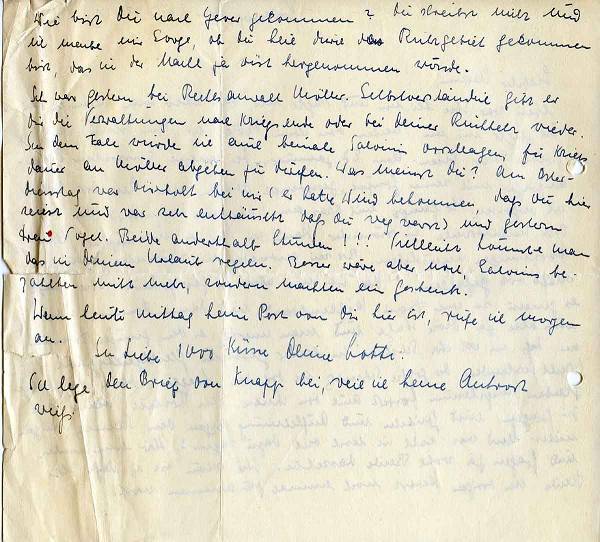 Wie bist Du nach Gera gekommen? Du schreibst nichts und
ich mache mir Sorge, ob Du heil durch das Ruhrgebiet gekommen
bist, das in der Nacht ja wüst hergenommen wurde.
Ich war gestern bei Rechtsanwalt Möller. Selbstverständlich gibt er
Dir die Verwaltungen nach Kriegsende oder bei Deiner Rückkehr wieder.
In dem Falle würde ich auch beinahe Salomin vorschlagen, für Kriegs
dauer an Möller abgeben zu dürfen. Was meinst Du? Am Oster-
dienstag war Birkholt bei mir (er hatte Wind bekommen, daß Du hier
seist und war sehr enttäuscht daß Du weg warst) und gestern
Frau Vogel. Beide anderthalb Stunden!!! Vielleicht könnte man
das in Deinem Urlaub regeln. Besser wäre aber noch, Salomins be-
zahlten nichts mehr, sondern machten ein Geschenk.
Wenn heute Mittag keine Post von Dir hier ist, rufe ich morgen
an. In Liebe 1000 Küsse Deine Lotte.
Ich lege den Brief von Knapp bei, weil ich keine Antwort
weiß.